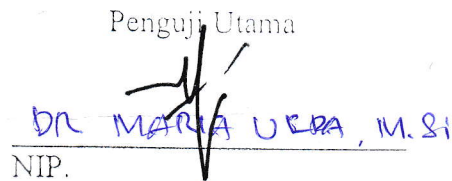 Penguji Utama
DR MARIA ULFA, M.Si
NIP.